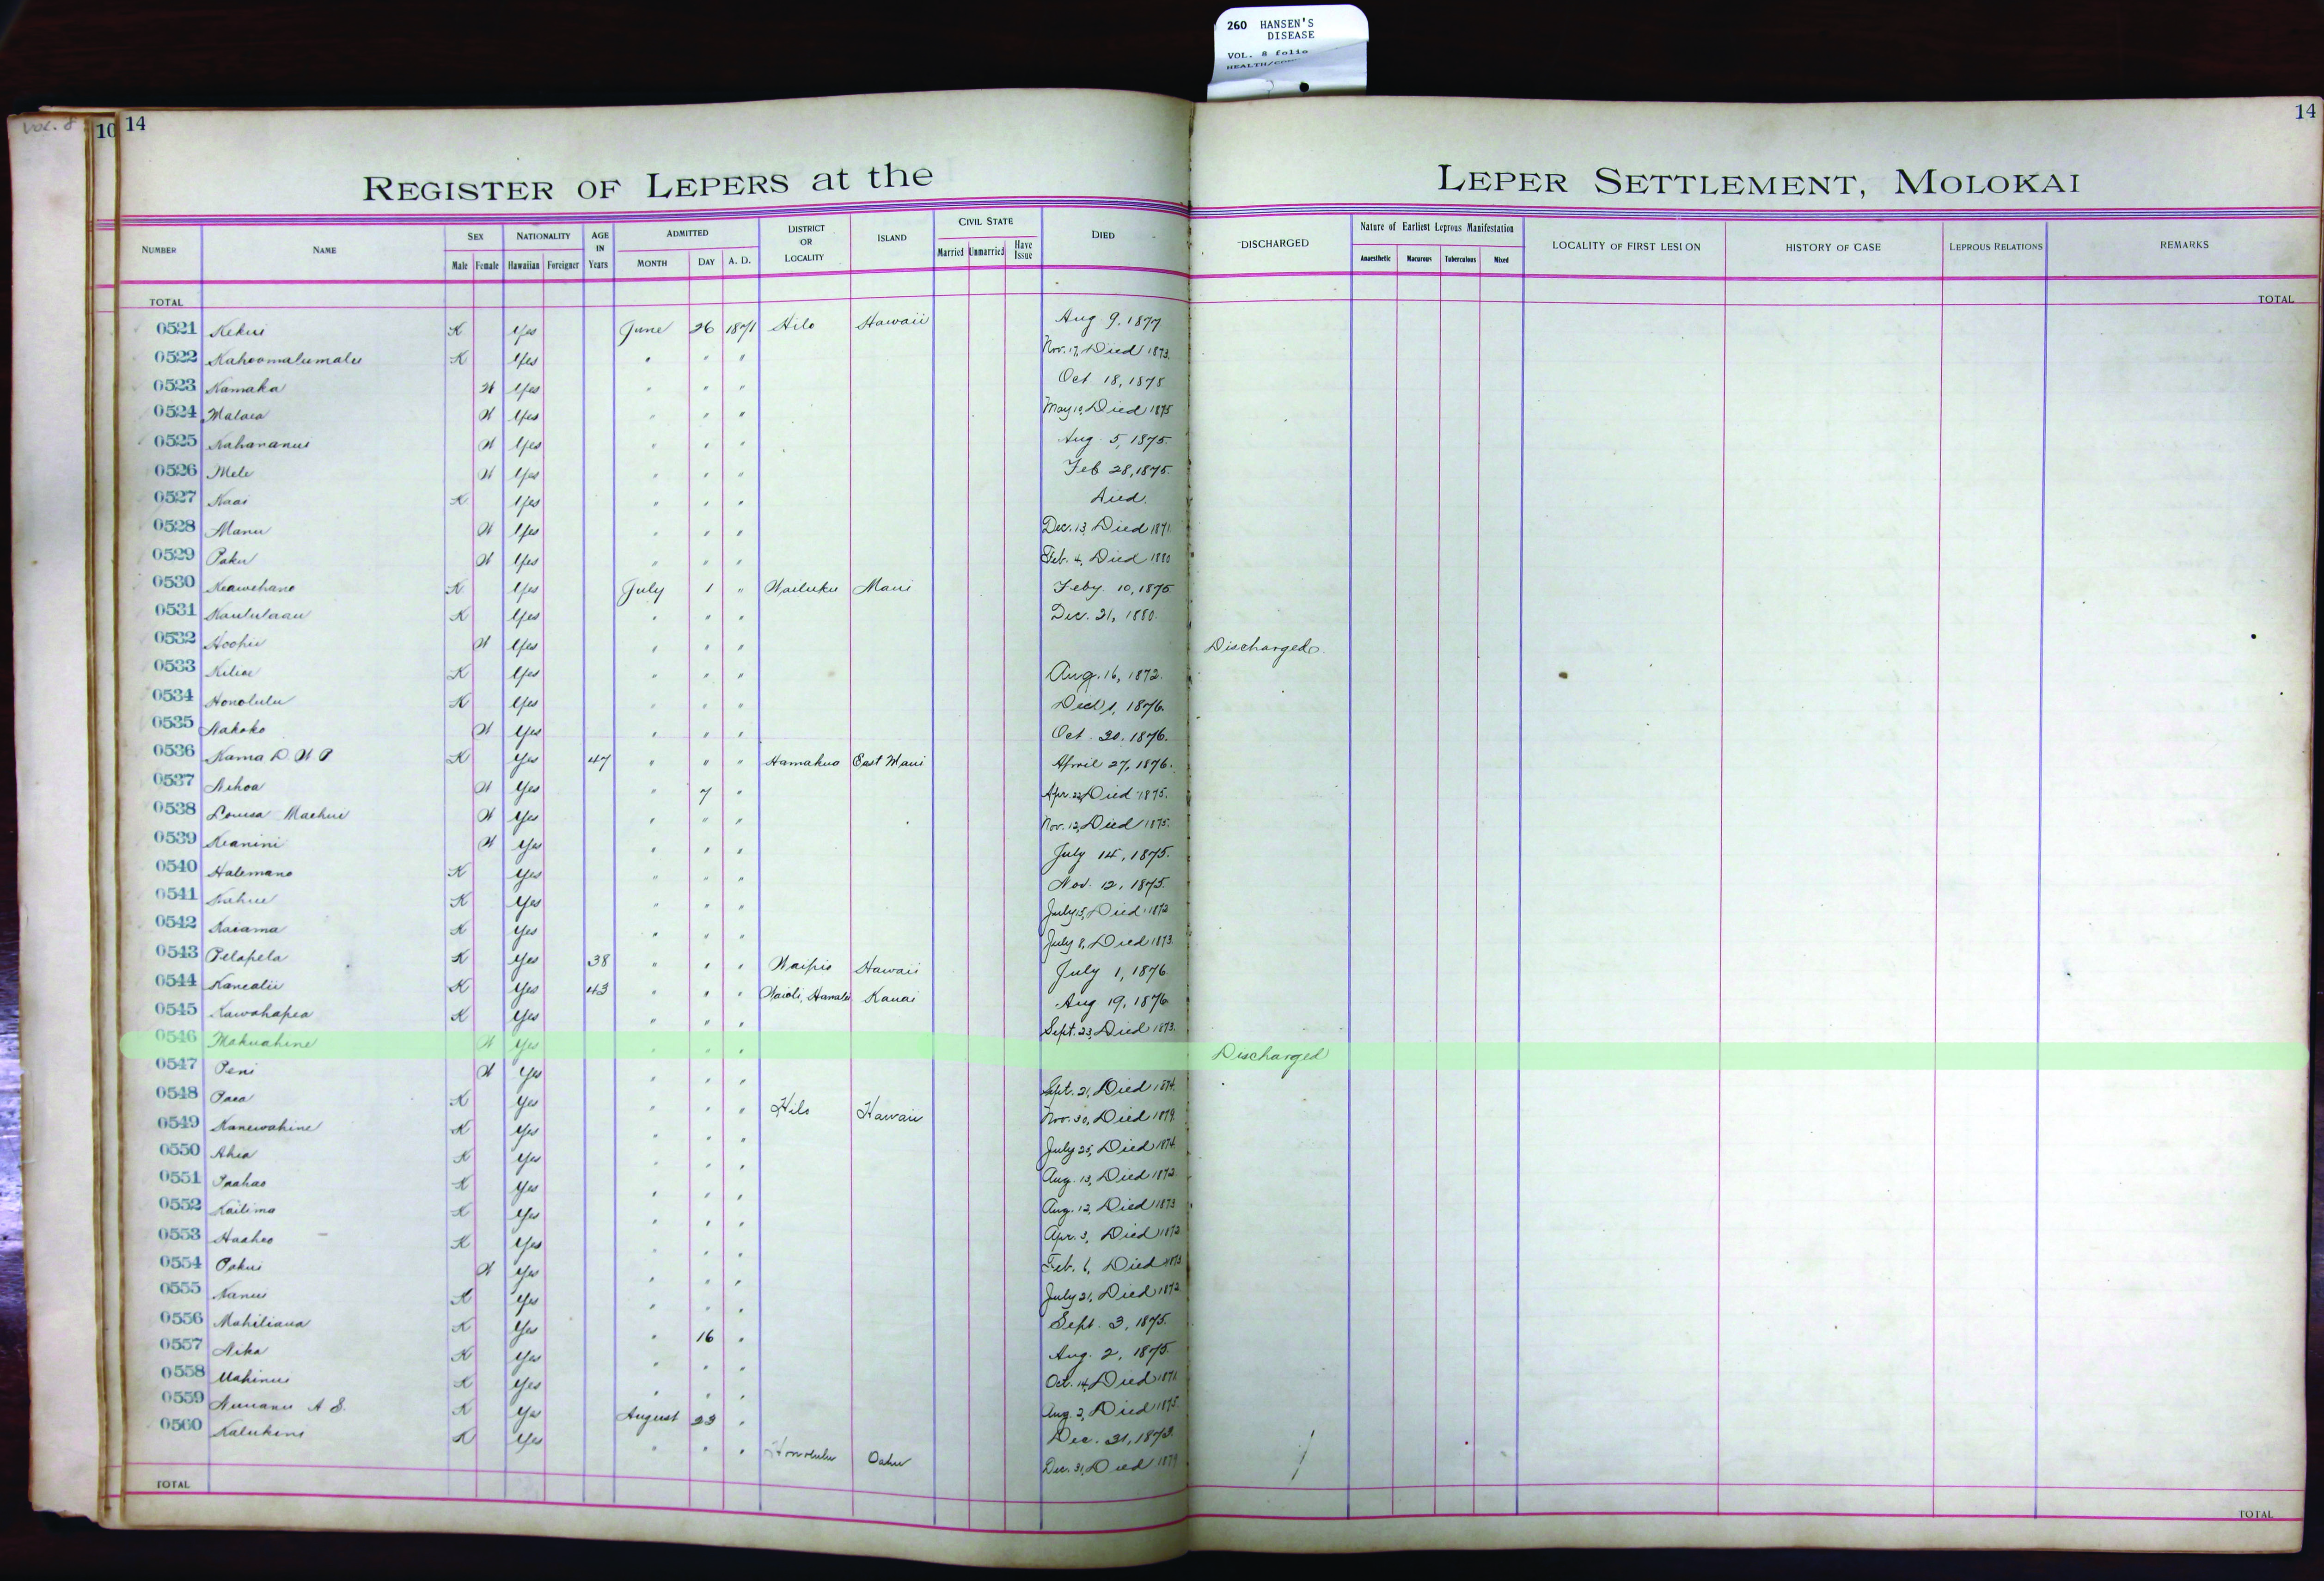 260 HANSEN'S
DISEASE
VOL. 8 folio
VOL. 8
10
14
14
REGISTER OF LEPERS at the LEPER SETTLEMENT, MOLOKAI
NUMBER NAME SEX Male Female NATIONALITY Hawaiian Foreigner AGE IN Years ADMITTED MONTH DAY A. D. DISTRICT OR LOCALITY ISLAND CIVIL STATE Married Unmarried Have Issue DIED DISCHARGED Nature of Earliest Leprous Manifestation Anaesthetic Macurous Tuberculous Mixed LOCALITY OF FIRST LESION HISTORY OF CASE LEPROUS RELATIONS REMARKS
TOTAL TOTAL
0521 Kekui K Yes June 26 1871 Hilo Hawaii Aug 9, 1877
0522 Kahoomalumalu K Yes " " " Nov. 17, Died 1873.
0523 Kamaka W Yes " " " Oct 18, 1875
0524 Malaea W Yes " " " May 10, Died 1875
0525 Kahananui W Yes " " " Aug. 5, 1875.
0526 Mele W Yes " " " Feb 28, 1875.
0527 Kaai K Yes " " " Died.
0528 Manu W Yes " " " Dec. 13, Died 1871
0529 Paku W Yes " " " Feb. 4, Died 1880
0530 Keawehano K Yes July 1 " Wailuku Maui Feby 10, 1875
0531 Kaululaau K Yes " " " Dec. 21, 1880.
0532 Hoohii W Yes " " " Discharged.
0533 Kiliae K Yes " " " Aug. 16, 1872.
0534 Honolulu K Yes " " " 1, 1876.
0535 Nakoko W Yes " " " Oct 20, 1876.
0536 Kama D. W P K Yes 47 " " " Hamakua East Maui April 27, 1876.
0537 Nihoa W Yes " 7 " Apr. 22, Died 1875.
0538 Louisa Maehui W Yes " " " Nov. 12, Died 1875.
0539 Keanini W Yes " " " July 14, 1875.
0540 Halemano K Yes " " " Nov. 12, 1875.
0541 Kahue K Yes " " " July 15, Died 1872
0542 Kaiama K Yes " " " July 8, Died 1873.
0543 Pelapela K Yes 38 " " " Waipio Hawaii July 1, 1876
0544 Kanealii K Yes 43 " " " Waioli, Hanalei Kauai Aug 19, 1876
0545 Kawahapea K Yes " " " Sept. 23, Died 1873.
0546 Makuahine W Yes " " " Discharged
0547 Peni W Yes " " " Sept. 21, Died 1874.
0548 Paea K Yes " " " Hilo Hawaii Nov. 30, Died 1879.
0549 Kanewahine K Yes " " " July 25, Died 1874.
0550 Ahia K Yes " " " Aug. 13, Died 1872.
0551 Paahao K Yes " " " Aug. 12, Died 1873
0552 Kailima K Yes " " " Apr. 3, Died 1872
0553 Haaheo K Yes " " " Feb. 6, Died 1873
0554 Pakui W Yes " " " July 21, Died 1872
0555 Nanui K Yes " " " Sept. 3, 1875.
0556 Mahiliaua K Yes " 16 " Aug. 2, 1875.
0557 Nika K Yes " " " Oct. 14, Died 1871.
0558 Mahinui K Yes " " " Aug. 2, Died 1875.
0559 Nuuanu A S. K Yes August 23 " Dec. 31, 1873.
0560 Kalukini K Yes " " " Honolulu Oahu Dec. 31, Died 1879
TOTAL TOTAL